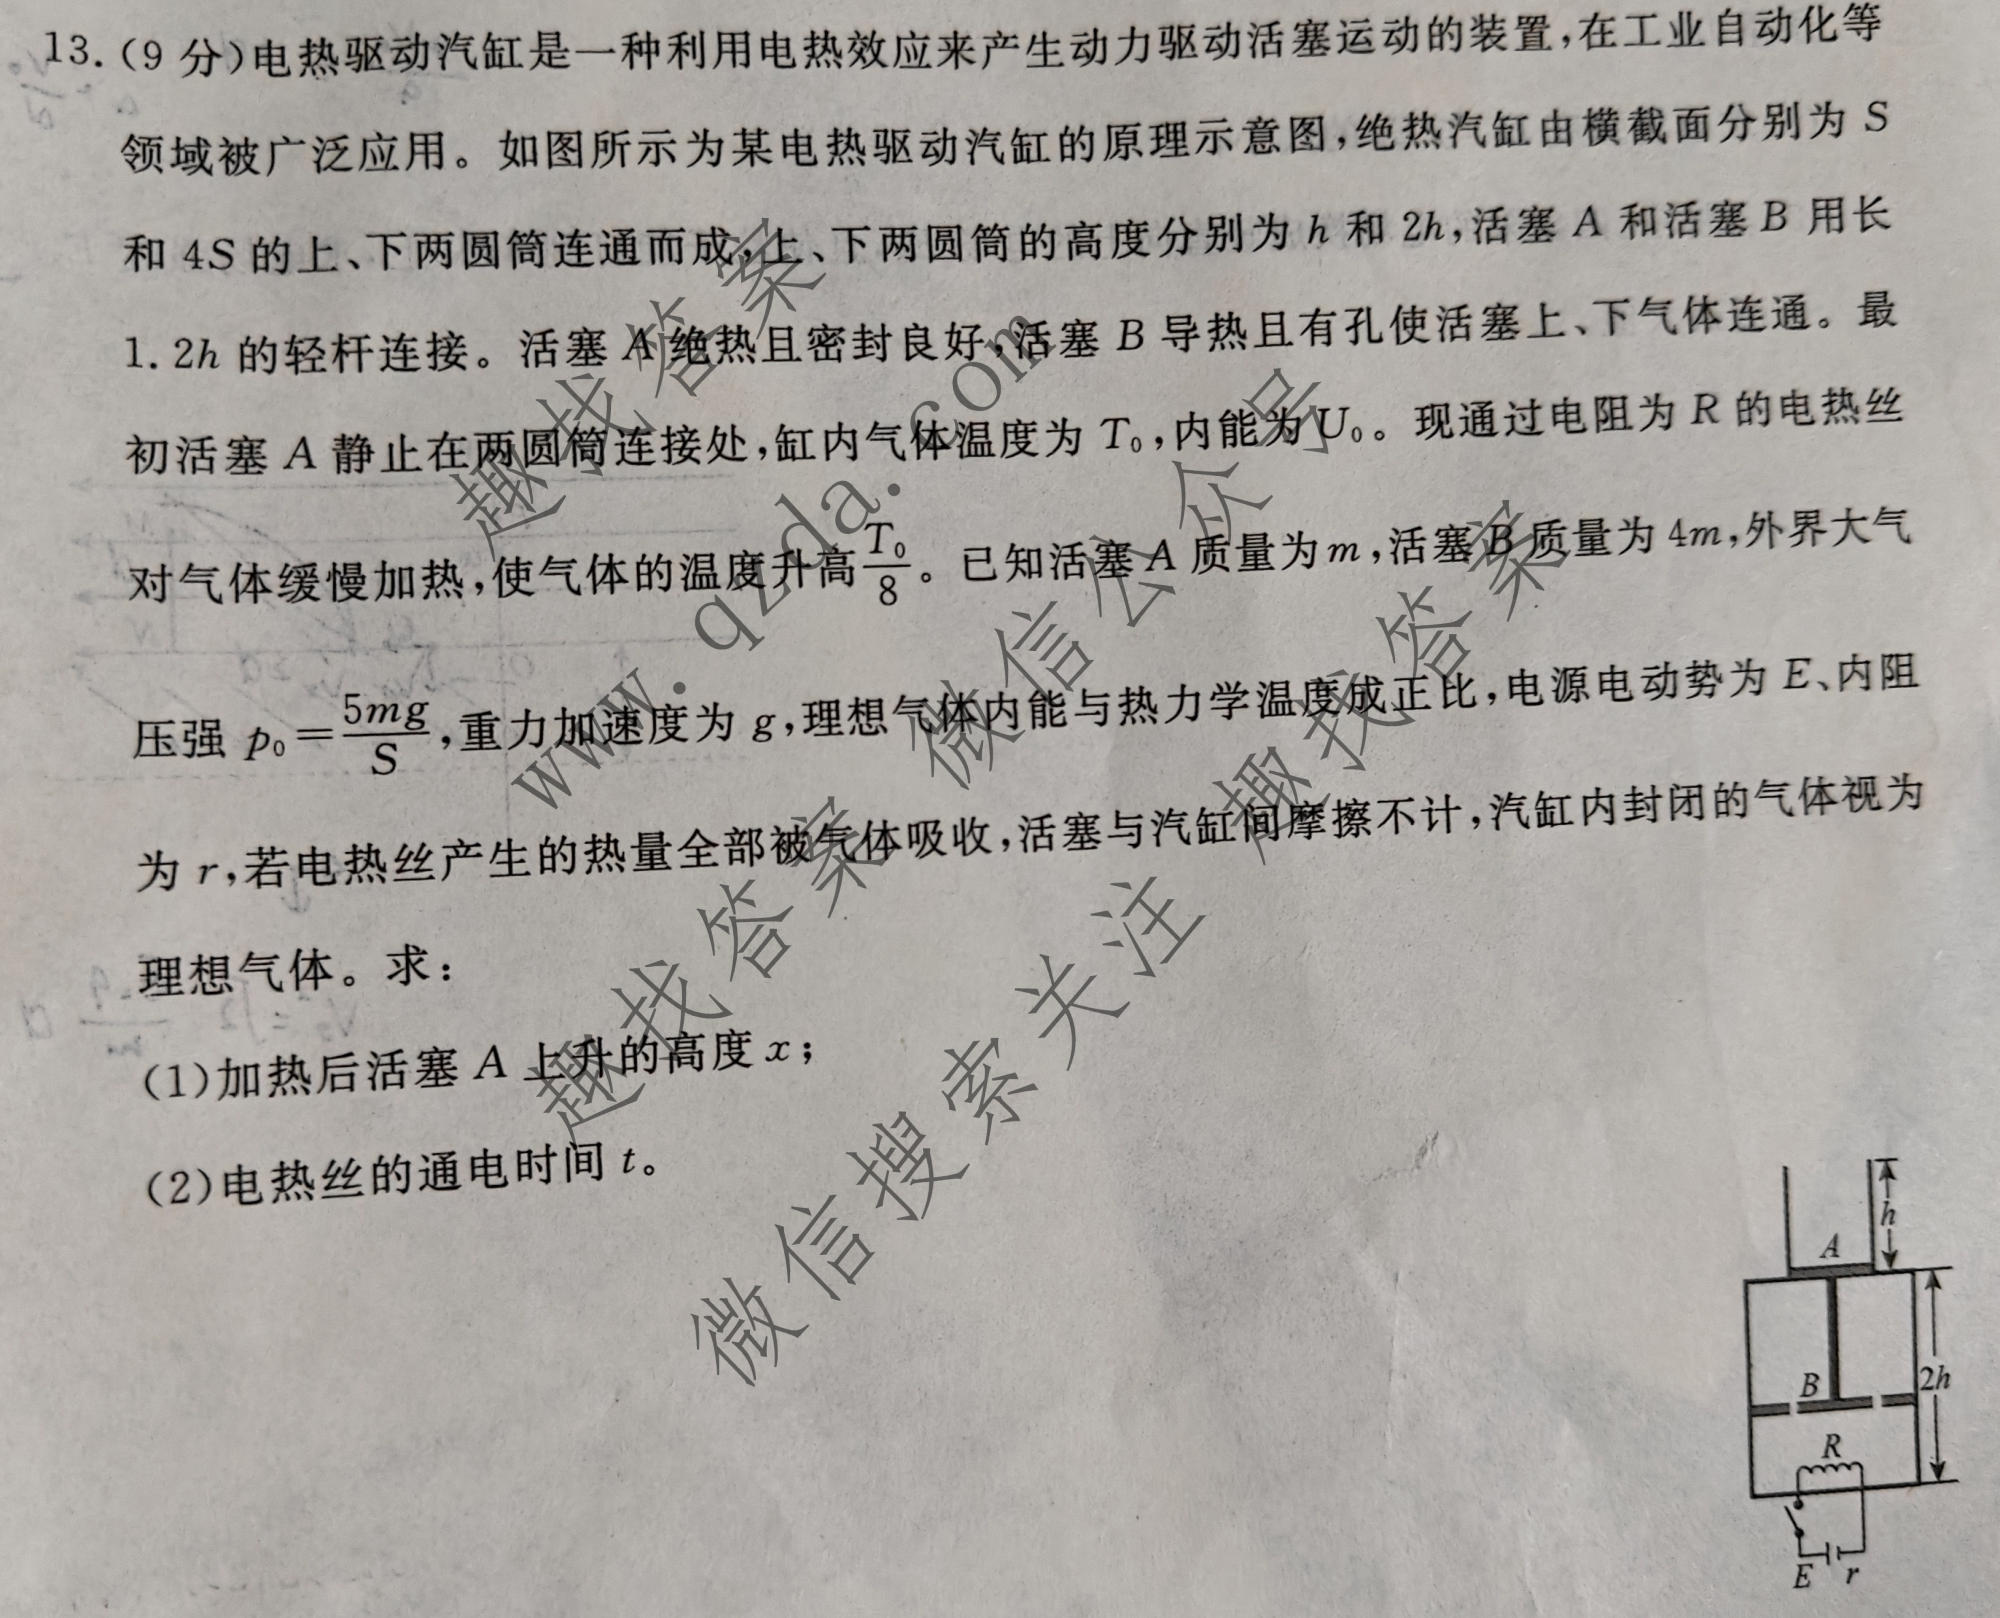 13.(9 分)电热驱动汽缸是一种利用电热效应来产生动力驱动活塞运动的装置,在工业自动化等
领域被广泛应用。如图所示为某电热驱动汽缸的原理示意图,绝热汽缸由横截面分别为 S
和 4S 的上、下两圆筒连通而成,上、下两圆筒的高度分别为 h 和 2h,活塞 A 和活塞 B 用长
1.2h 的轻杆连接。活塞 A 绝热且密封良好,活塞 B 导热且有孔使活塞上、下气体连通。最
初活塞 A 静止在两圆筒连接处,缸内气体温度为 T₀,内能为 U₀。现通过电阻为 R 的电热丝
对气体缓慢加热,使气体的温度升高 T₀/8。已知活塞 A 质量为 m,活塞 B 质量为 4m,外界大气
压强 p₀=5mg/S,重力加速度为 g,理想气体内能与热力学温度成正比,电源电动势为 E、内阻
为 r,若电热丝产生的热量全部被气体吸收,活塞与汽缸间摩擦不计,汽缸内封闭的气体视为
理想气体。求:
(1)加热后活塞 A 上升的高度 x;
(2)电热丝的通电时间 t。
h
A
B
2h
R
E r
趣找答案
www.qzda.com
微信公众号
趣找答案
趣找答案
微信搜索关注